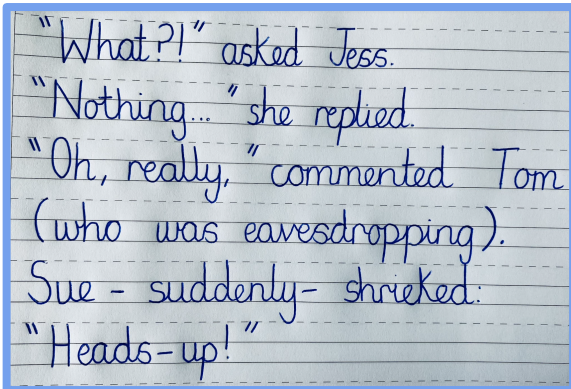 "What?!" asked Jess.
"Nothing..." she replied.
"Oh, really," commented Tom
(who was eavesdropping).
Sue - suddenly - shrieked:
"Heads-up!"